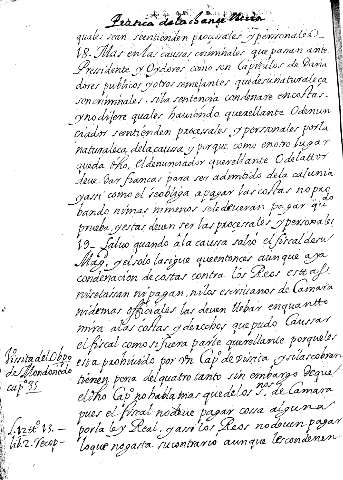 Pratica de la Chancilleria
quales sean se entienden procesales y personales
18. Mas en las causas criminales que pasan ante
Presidente y Oydores como son Capitulos de
dores publicos y otros semejantes que de su naturaleça
son criminales, si la sentencia condenare en costas
y no dijere quales haviendo querellante o denun
ciador se entienden procesales y personales por la
naturaleça de la causa y porque como en otro lugar
queda dho, el denunciador querellante o delattor
deve dar fianças para ser admitido de la calunia
y assi como el se obliga a pagar las costas no pro
bando ni mas ni menos se le deveran pagar quando
prueba, y estas deven ser las procesales y personales
19. Salvo quando a la causa salió el fiscal de su
Magd. y el solo la sigue que entonces aunque aya
condenacion de costas contra los Reos estos
no las pagan, ni los escrivanos de Camara
ni demas officiales las deven llebar en quantto
mira a las costas y derechos que pudo caussar
el fiscal como si fuera parte querellante porque les
esta prohivido por un Capº de visita y si las cobran
tienen pena del quatro tanto sin embargo de que
el dho Capº no habla mas que de los de Camara
pues el fiscal no deve pagar cosa alguna
por la ley Real, y assi los Reos no deven pagar
lo que no gasta su contrario aunque les condenen
Visita del Obpo
de Mondoñedo
capº 35
lib. 2. Recop